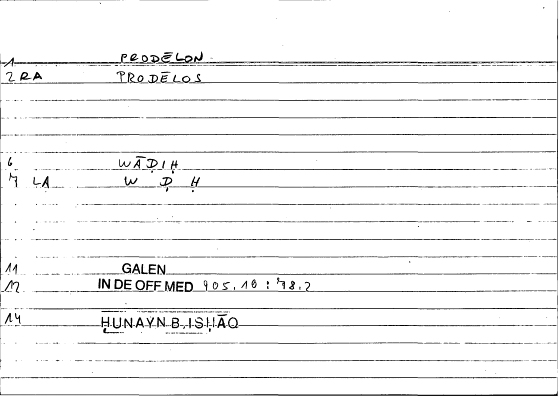 1 PRODĒLON
2 RA PRODĒLOS
6 WĀḌIḤ
7 LA W Ḍ Ḥ
11 GALEN
12 IN DE OFF MED 905.10 : 78.2
14 ḤUNAYN B. ISḤĀQ